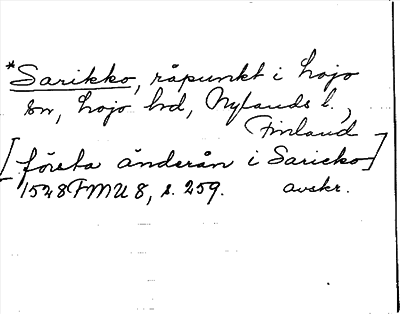 *Sarikko, råpunkt i Lojo
sn, Lojo hd, Nylands l.,
Finland
[första änderån i Saricko]
1528 FMU 8, s. 259. avskr.